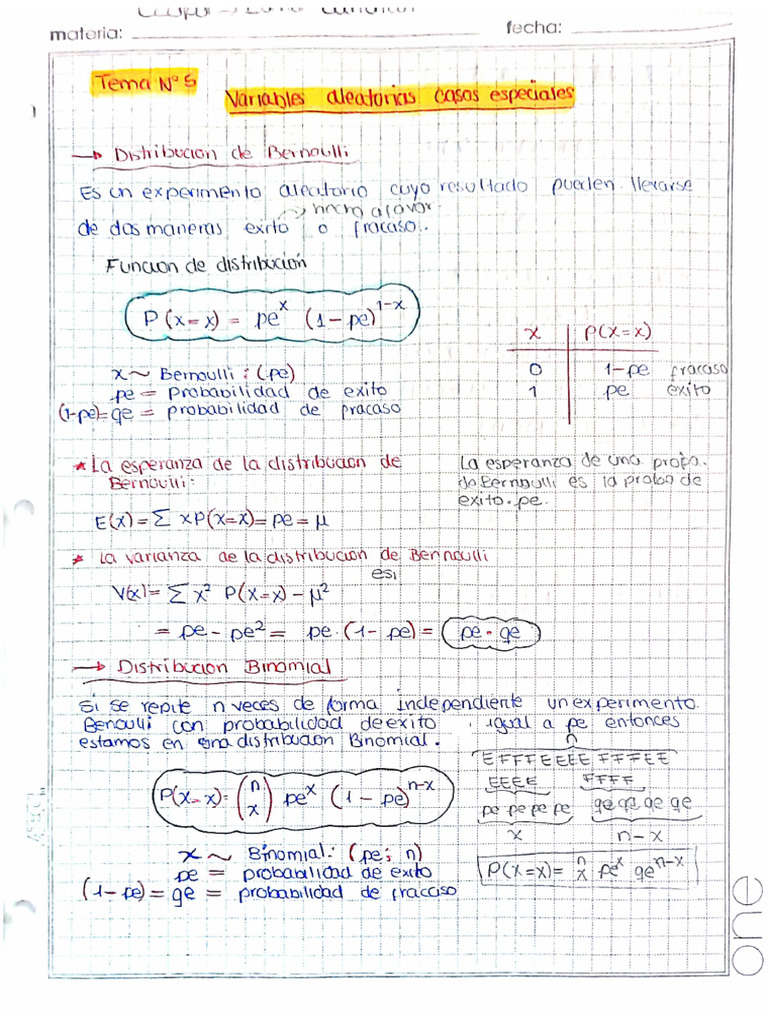 materia:
fecha:
Tema Nº 5
Variables aleatorias casos especiales
→ Distribucion de Bernoulli
Es un experimento aleatorio cuyo resultado pueden llevarse
de dos maneras exito o fracaso.
Funcion de distribución
P(x=x) = pe^x (1-pe)^{1-x}
x ~ Bernoulli : (pe)
pe = Probabilidad de exito
(1-pe)=qe = probabilidad de fracaso
x | P(X=x)
0 | 1-pe fracaso
1 | pe éxito
* La esperanza de la distribucion de
Bernoulli:
E(x) = Σ xP(x=x) = pe = μ
La esperanza de una
es la
exito. pe.
* La varianza de la distribucion de Bernnoulli
es,
V(x) = Σ x² P(x=x) - μ²
= pe - pe² = pe. (1-pe) = pe · qe
→ Distribucion Binomial
Si se repite n veces de forma independiente un experimento
Benoulli con probabilidad de exito igual a pe entonces
estamos en una distribucion Binomial.
P(x=x) = (n x) pe^x (1-pe)^{n-x}
x ~ Binomial: (pe; n)
pe = probabilidad de exito
(1-pe) = qe = probabilidad de fracaso
n
EFFFEEEEFFFEE
EEEE FFFF
pe pe pe pe qe qe qe qe
x n-x
P(X=x) = n x pe^x qe^{n-x}
one